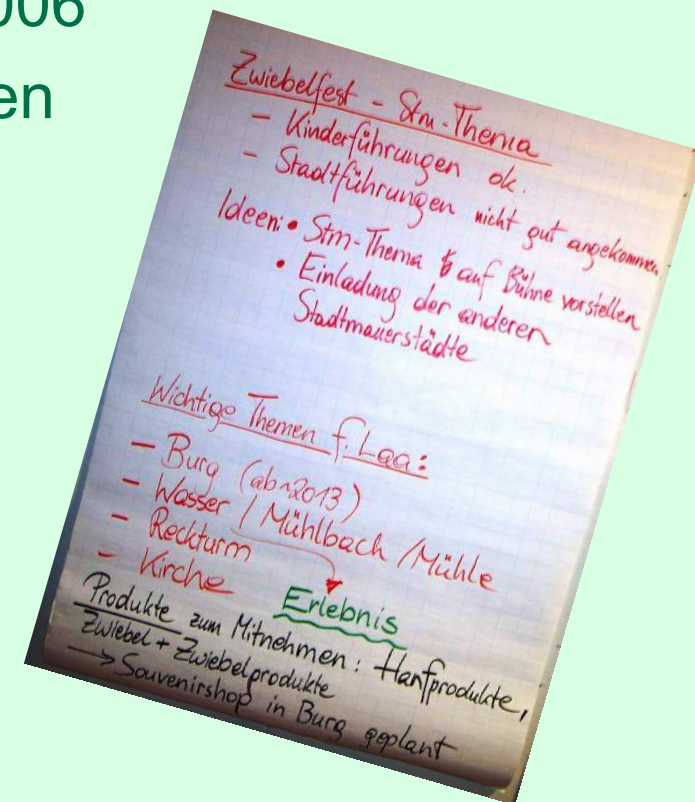 006
en
Zwiebelfest - Stm-Thema
- Kinderführungen ok.
- Stadtführungen nicht gut angekommen
Ideen: • Stm-Thema auf Bühne vorstellen
• Einladung der anderen
Stadtmauerstädte
Wichtige Themen f. Laa:
- Burg (ab ~2013)
- Wasser / Mühlbach / Mühle
- Reckturm
- Kirche
Erlebnis
Produkte zum Mitnehmen: Hanfprodukte,
Zwiebel + Zwiebelprodukte
-> Souvenirshop in Burg geplant